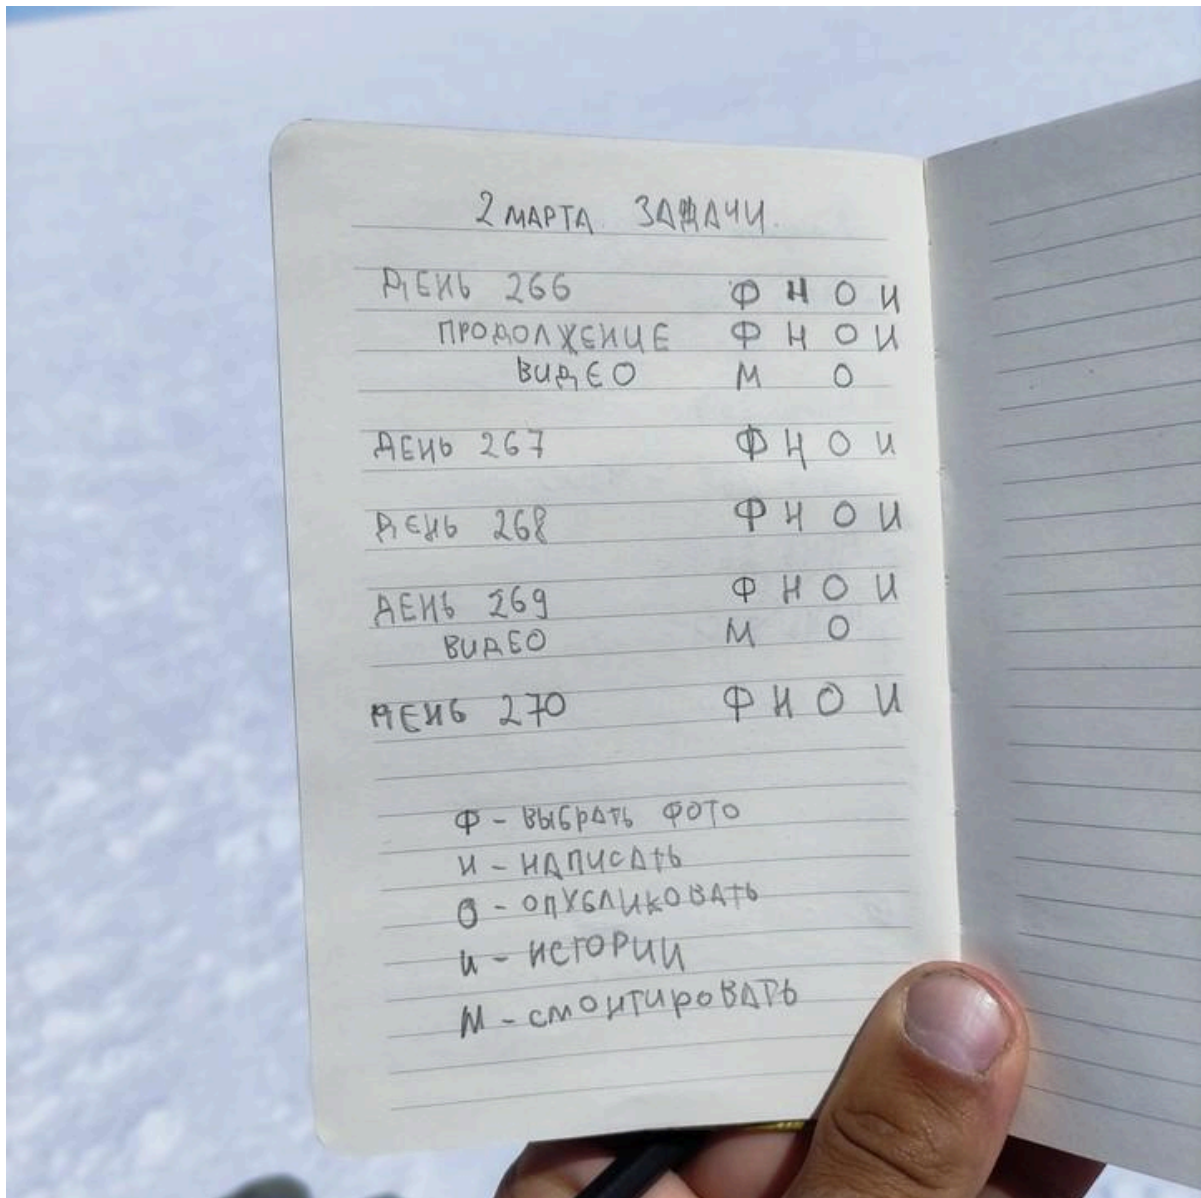 2 МАРТА ЗАДАЧИ.
ДЕНЬ 266 Ф Н О И
ПРОДОЛЖЕНИЕ Ф Н О И
ВИДЕО М О
ДЕНЬ 267 Ф Н О И
ДЕНЬ 268 Ф Н О И
ДЕНЬ 269 Ф Н О И
ВИДЕО М О
ДЕНЬ 270 Ф Н О И
Ф - ВЫБРАТЬ ФОТО
Н - НАПИСАТЬ
О - ОПУБЛИКОВАТЬ
И - ИСТОРИИ
М - СМОНТИРОВАТЬ